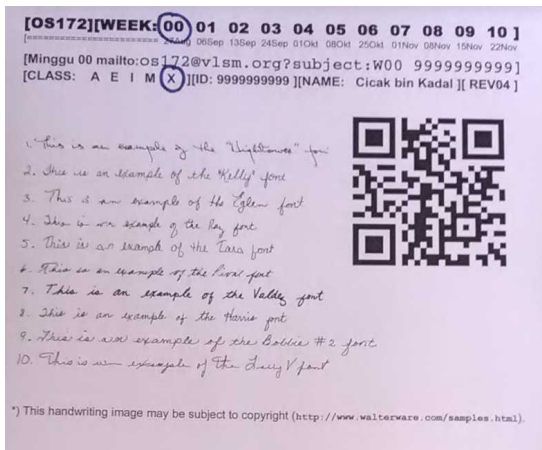 [OS172][WEEK: 00 01 02 03 04 05 06 07 08 09 10 ]
[================== 27Aug 06Sep 13Sep 24Sep 01Okt 08Okt 25Okt 01Nov 08Nov 15Nov 22Nov
[Minggu 00 mailto:os172@vlsm.org?subject:W00 9999999999]
[CLASS: A E I M X ][ID: 9999999999 ][NAME: Cicak bin Kadal ][ REV04 ]
1. This is an example of the "Hightower" font
2. This is an example of the "Kelly" font
3. This is an example of the Eglen font
4. This is an example of the Ray font
5. This is an example of the Tara font
6. This is an example of the font
7. This is an example of the Valdez font
8. This is an example of the Harris font
9. This is an example of the Bobbie #2 font
10. This is an example of the V font
*) This handwriting image may be subject to copyright (http://www.walterware.com/samples.html).